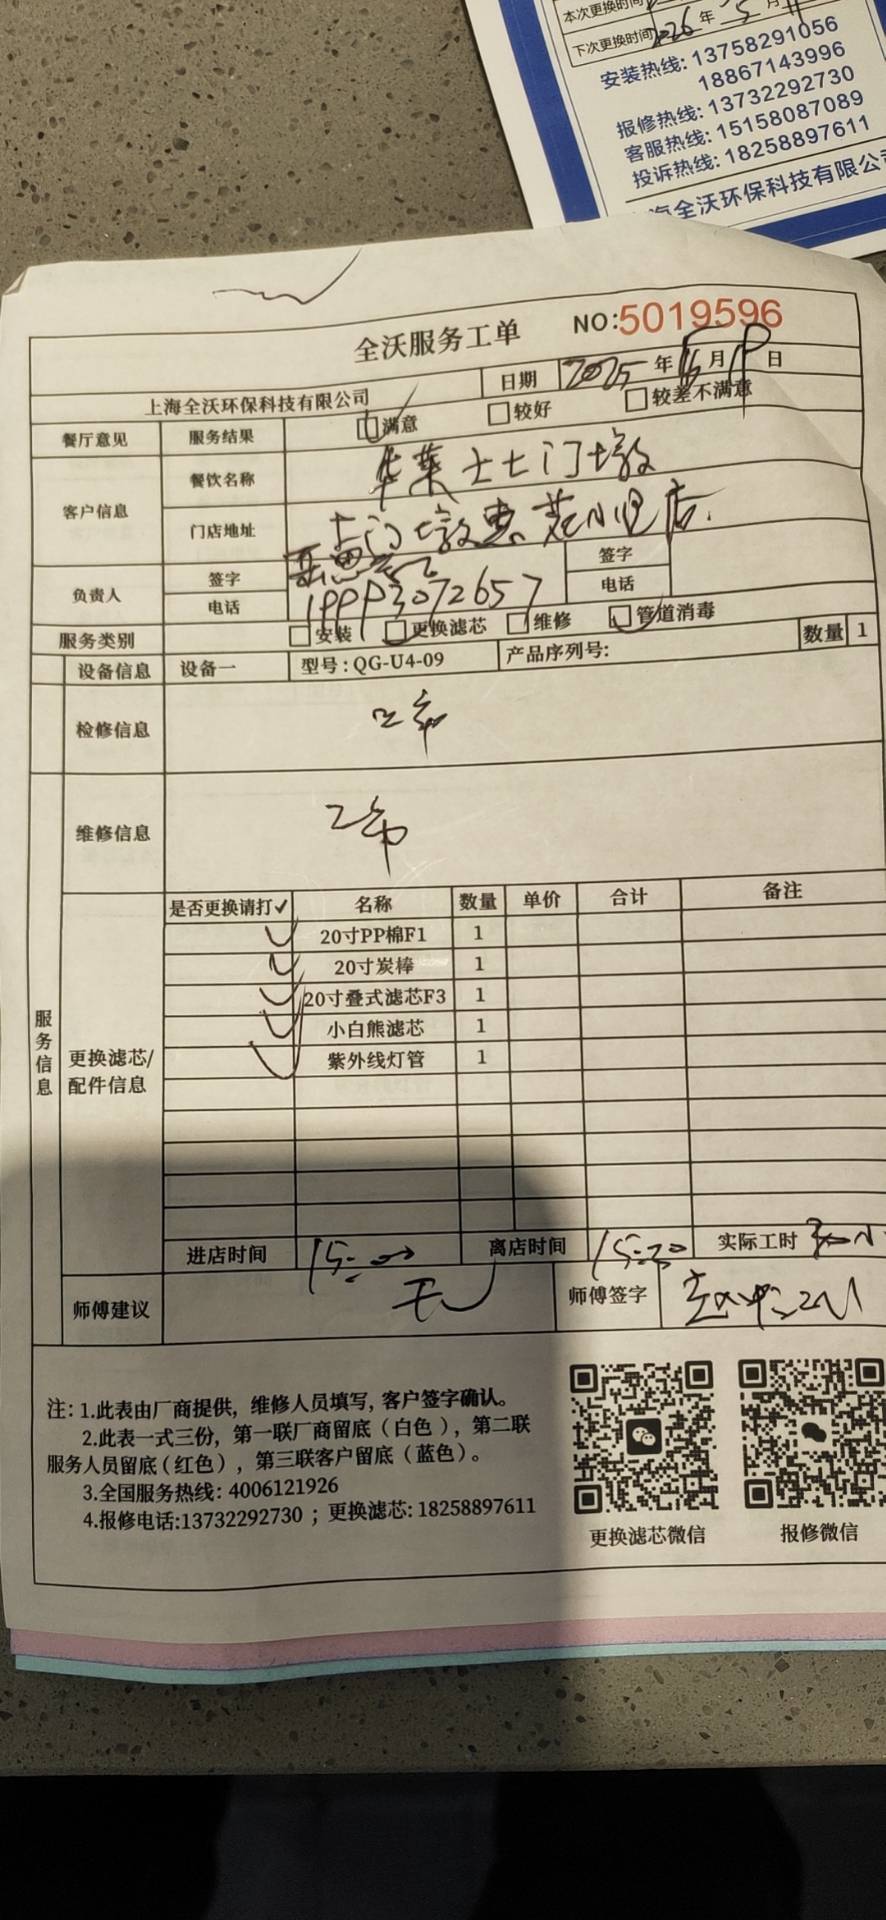 本次更换时间
下次更换时间 2026年5月
安装热线: 13758291056
18867143996
报修热线: 13732292730
客服热线: 15158087089
投诉热线: 18258897611
海全沃环保科技有限公
全沃服务工单 NO:5019596
上海全沃环保科技有限公司 日期 2025年 月 日
餐厅意见 服务结果 满意 较好 较差不满意
客户信息 餐饮名称 华莱士土门墩
门店地址 土门墩 店
负责人 签字 签字
电话 电话
服务类别 安装 更换滤芯 维修 管道消毒
设备信息 设备一 型号: QG-U4-09 产品序列号: 数量 1
检修信息 正常
维修信息 正常
服务信息
更换滤芯/配件信息
是否更换请打✓ 名称 数量 单价 合计 备注
✓ 20寸PP棉F1 1
✓ 20寸炭棒 1
✓ 20寸叠式滤芯F3 1
✓ 小白熊滤芯 1
✓ 紫外线灯管 1
进店时间 15:00 离店时间 15:30 实际工时
师傅建议 无 师傅签字
注: 1.此表由厂商提供, 维修人员填写, 客户签字确认。
2.此表一式三份, 第一联厂商留底 (白色), 第二联
服务人员留底 (红色), 第三联客户留底 (蓝色)。
3.全国服务热线: 4006121926
4.报修电话:13732292730 ; 更换滤芯: 18258897611
更换滤芯微信 报修微信